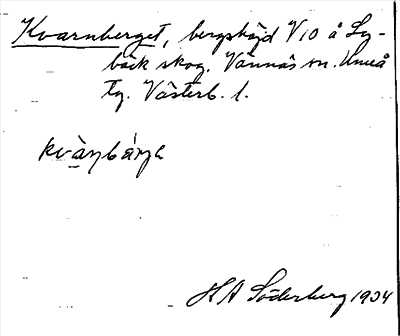 Kvarnberget, bergshöjd V10 å Sy-
bäck skog. Vännäs sn. Umeå
tg. Västerb. l.
kvàṇbár̨jə
H A Söderberg 1934